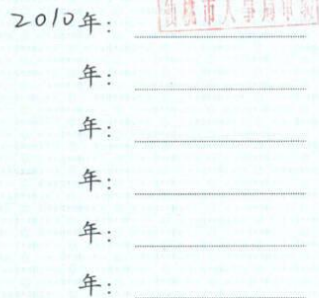 2010年：
年：
年：
年：
年：
年：